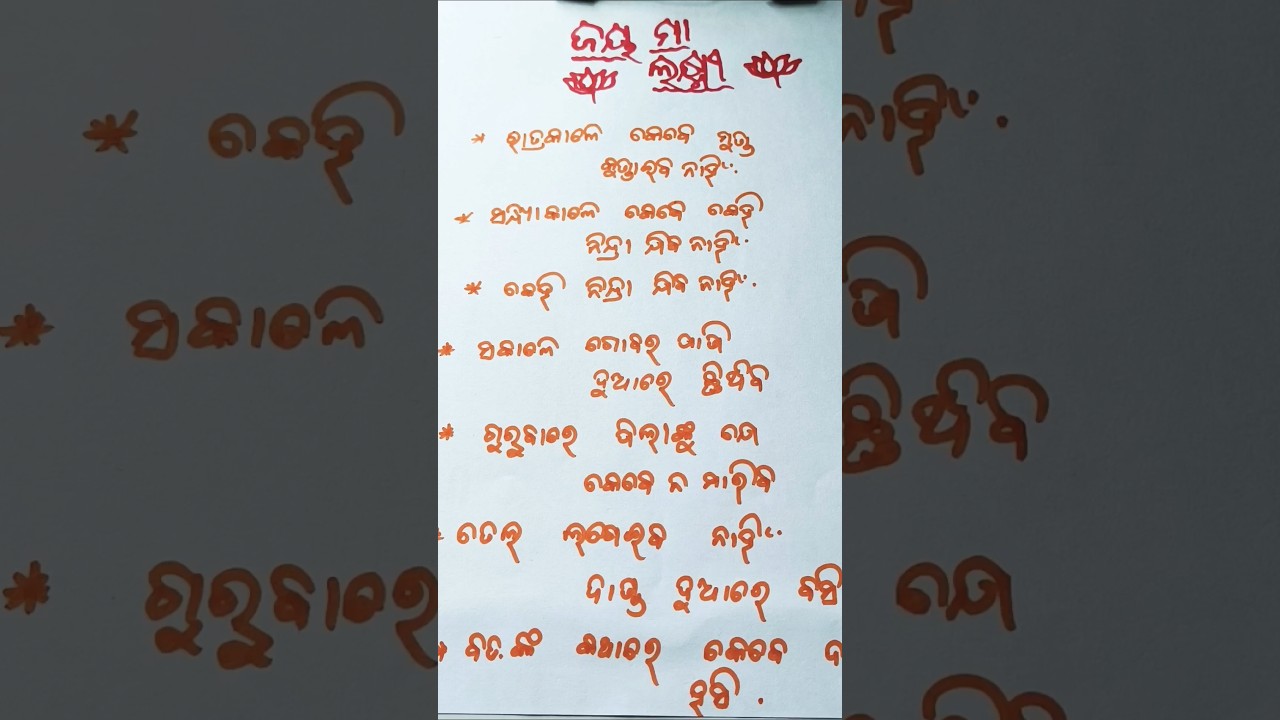 ଜୟ ମା
ଲକ୍ଷ୍ମୀ
* ରାତ୍ରକାଳେ କେବେ
ନାହିଁ.
* ସନ୍ଧ୍ୟାକାଳେ କେବେ କେହି
ନିଦ୍ରା ଯିବ ନାହିଁ
* କେହି ନିଦ୍ରା ଯିବ ନାହିଁ.
* ସକାଳେ ଗୋବର
ଦୁଆରେ ଛିଞ୍ଚିବ
* ଗୁରୁବାରେ ପିଲାଙ୍କୁ ଯେ
କେବେ ନ ମାରିବ
ତେଲ ଲଗେଇବ ନାହିଁ.
ଦାଣ୍ଡ ଦୁଆରେ ବସି
କଥାରେ କେବେ
ହସି.